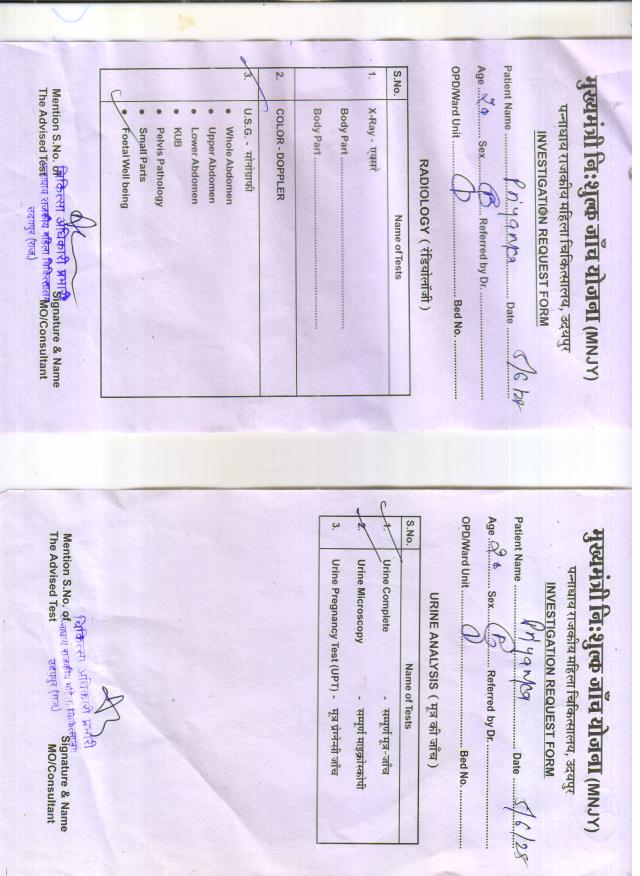 मुख्यमंत्री नि:शुल्क जाँच योजना (MNJY)
पन्नाधाय राजकीय महिला चिकित्सालय, उदयपुर
INVESTIGATION REQUEST FORM
Patient Name Priyanka Date 5/6/28
Age २० Sex Referred by Dr.
OPD/Ward Unit Bed No.
RADIOLOGY ( रेडियोलॉजी )
S.No. Name of Tests
1. X-Ray - एक्सरे
Body Part
Body Part
2. COLOR - DOPPLER
3. U.S.G. - सोनोग्राफी
• Whole Abdomen
• Upper Abdomen
• Lower Abdomen
• KUB
• Pelvis Pathology
• Small Parts
• Foetal Well being
चिकित्सा अधिकारी प्रभारी
पन्नाधाय राजकीय महिला चिकित्सालय
उदयपुर (राज.)
Mention S.No. of Signature & Name
The Advised Test MO/Consultant
मुख्यमंत्री नि:शुल्क जाँच योजना (MNJY)
पन्नाधाय राजकीय महिला चिकित्सालय, उदयपुर
INVESTIGATION REQUEST FORM
Patient Name Priyanka Date 5/6/28
Age २० Sex Referred by Dr.
OPD/Ward Unit Bed No.
URINE ANALYSIS ( मूत्र की जाँच )
S.No. Name of Tests
1. Urine Complete - सम्पूर्ण मूत्र -जाँच
2. Urine Microscopy - सम्पूर्ण माइक्रोस्कोपी
3. Urine Pregnancy Test (UPT) - मूत्र प्रेगनेन्सी जाँच
चिकित्सा अधिकारी प्रभारी
पन्नाधाय राजकीय महिला चिकित्सालय
उदयपुर (राज.)
Mention S.No. of Signature & Name
The Advised Test MO/Consultant